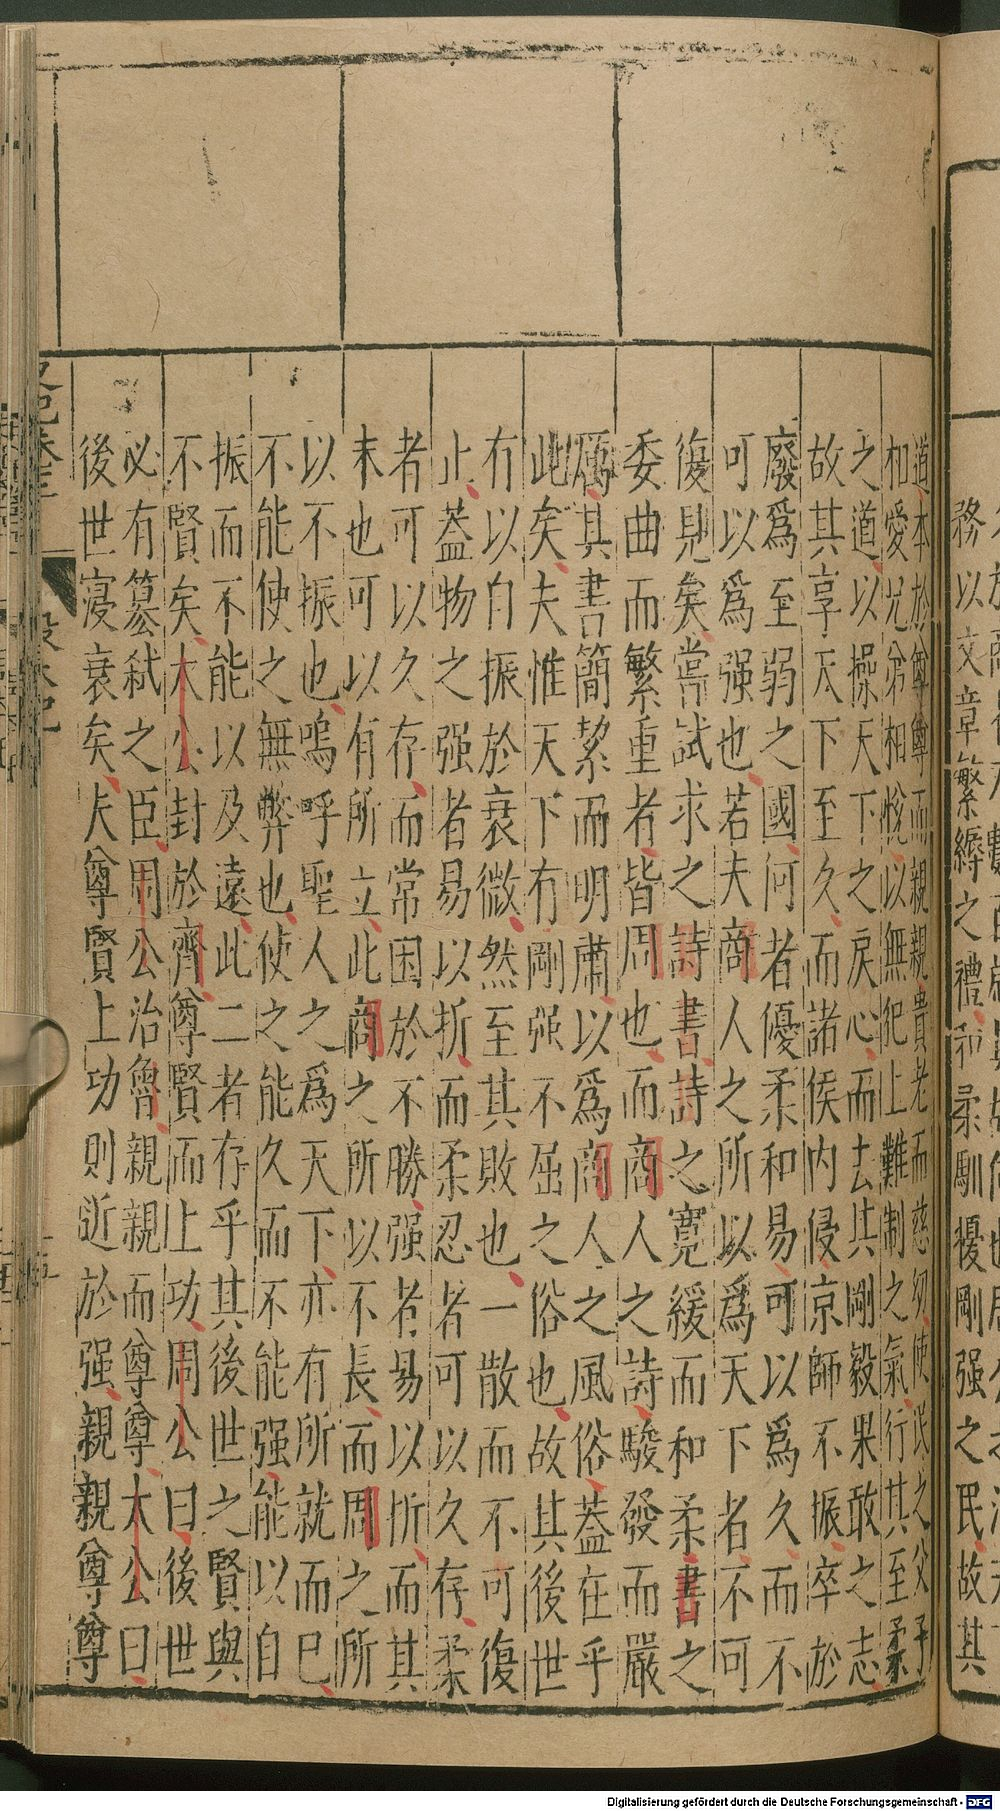 務以文章繁縟之禮和柔馴擾剛强之民故其
道本於尊尊而親親貴老而慈幼使民之父子
相愛兄弟相悅以無犯上難制之氣行其至柔
之道以揉天下之戾心而去其剛毅果敢之志
故其享天下至久而諸侯内侵京師不振卒於
廢爲至弱之國何者優柔和易可以爲久而不
可以爲强也若夫商人之所以爲天下者不可
復見矣嘗試求之詩書詩之寛緩而和柔書之
委曲而繁重者皆周也而商人之詩駿發而嚴
厲其書簡絜而明肅以爲商人之風俗蓋在乎
此矣夫惟天下有剛强不屈之俗也故其後世
有以自振於衰微然至其敗也一散而不可復
止蓋物之强者易以折而柔忍者可以久存柔
者可以久存而常困於不勝强者易以折而其
末也可以有所立此商之所以不長而周之所
以不振也嗚呼聖人之爲天下亦有所就而已
不能使之無弊也使之能久而不能强能以自
振而不能以及遠此二者存乎其後世之賢與
不賢矣太公封於齊尊賢而上功周公曰後世
必有簒弑之臣周公治魯親親而尊尊太公曰
後世寖衰矣夫尊賢上功則近於强親親尊尊
Digitalisierung gefördert durch die Deutsche Forschungsgemeinschaft - DFG